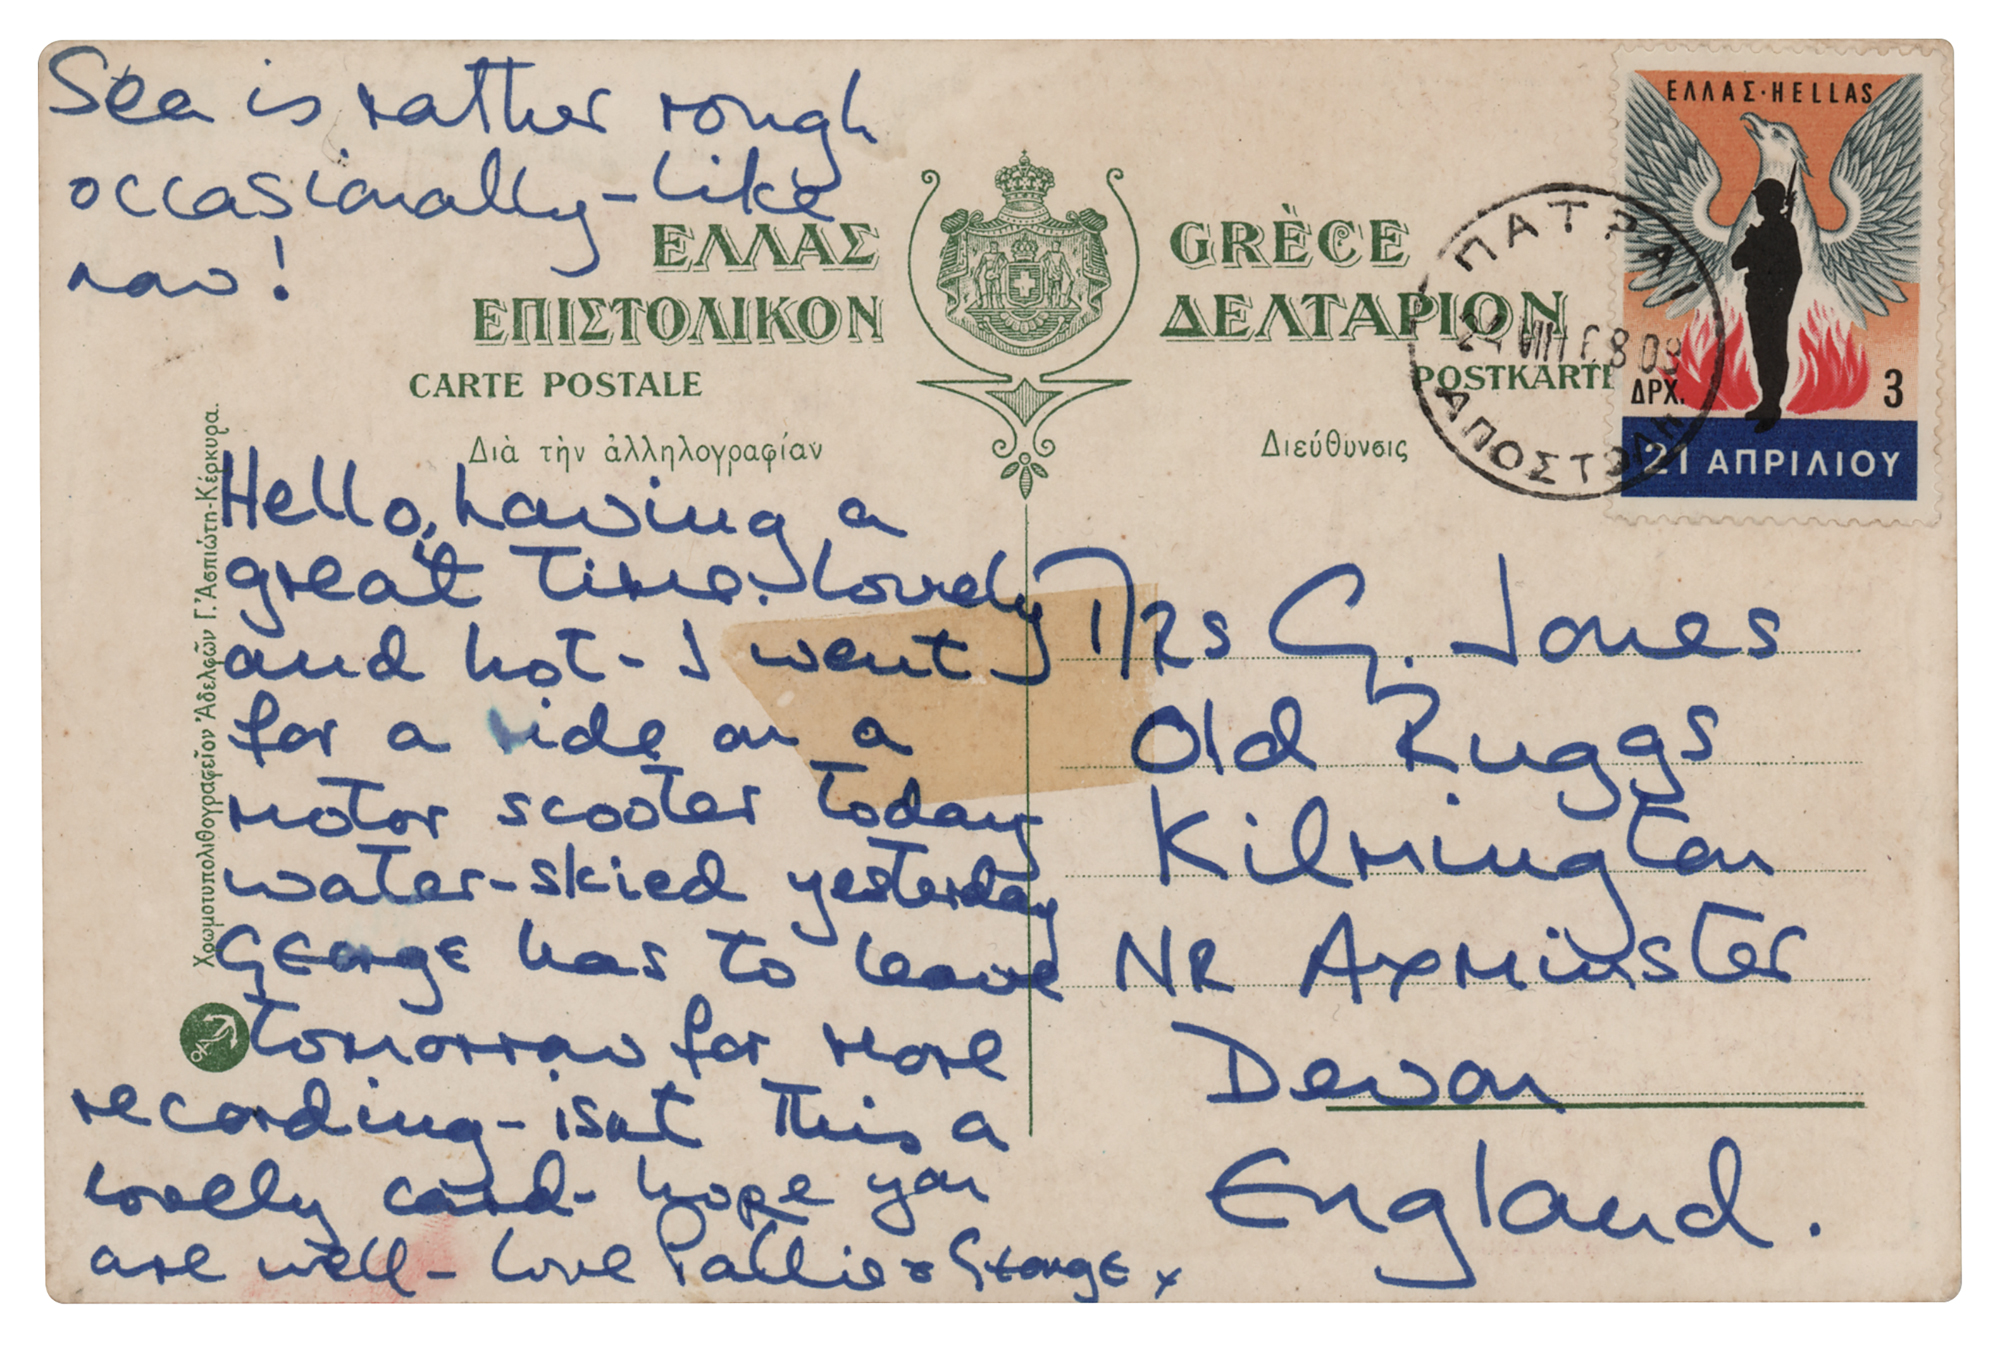 Sea is rather rough
occasionally - like
now!
ΕΛΛΑΣ GRÈCE
ΕΠΙΣΤΟΛΙΚΟΝ ΔΕΛΤΑΡΙΟΝ
CARTE POSTALE POSTKARTE
Διὰ τὴν ἀλληλογραφίαν
Διεύθυνσις
ΕΛΛΑΣ·HELLAS
ΔΡΧ. 3
21 ΑΠΡΙΛΙΟΥ
ΠΑΤΡΑΙ
24 VIII 68 09
ΑΠΟΣΤΟΛΗ
Χρωμοτυπολιθογραφεῖον Ἀδελφῶν Γ. Ἀσπιώτη-Κέρκυρα.
Hello, having a
great time. Lovely
and hot - I went
for a ride on a
motor scooter today
water-skied yesterday
GEORGE has to leave
tomorrow for more
recording - isnt this a
lovely card - hope you
are well - love Pattie & GEORGE x
Mrs G. Jones
Old Ruggs
Kilmington
NR Axminster
Devon
England.